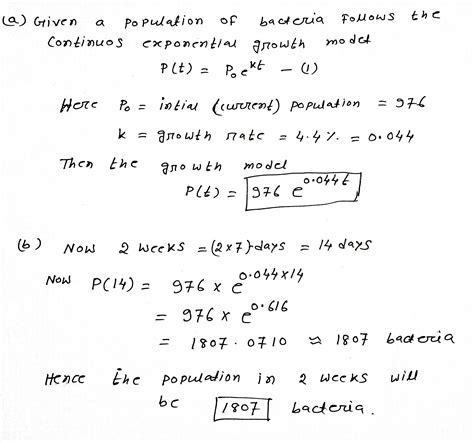 (a) Given a population of bacteria follows the
Continuos exponential growth model
P(t) = P₀ e^kt — (1)
Here P₀ = intial (current) population = 976
k = growth rate = 4.4 % = 0.044
Then the growth model
P(t) = 976 e^0.044t
(b) Now 2 weeks = (2×7) days = 14 days
Now P(14) = 976 × e^0.044×14
= 976 × e^0.616
= 1807.0710 ≈ 1807 bacteria
Hence the population in 2 weeks will
be 1807 bacteria.